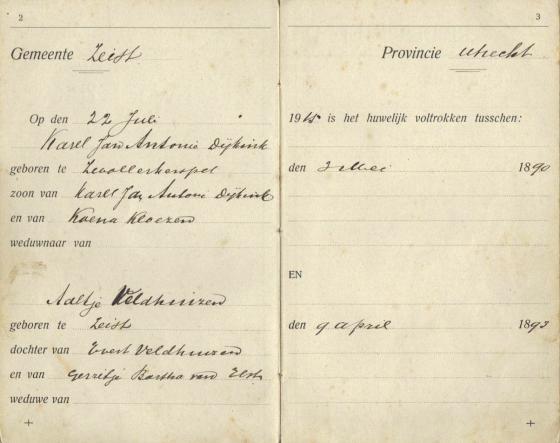 2
Gemeente Zeist
Op den 22 Juli
Karel Jan Antonie Dijkink
geboren te Zwollerkerspel
zoon van Karel Jan Antoni Dijkink
en van Koena Kloezen
weduwnaar van
Aaltje Veldhuizen
geboren te Zeist
dochter van Evert Veldhuizen
en van Gerretje Bartha van Elst
weduwe van
3
Provincie Utrecht
1915 is het huwelijk voltrokken tusschen:
den 3 Mei 1890
EN
den 9 April 1893